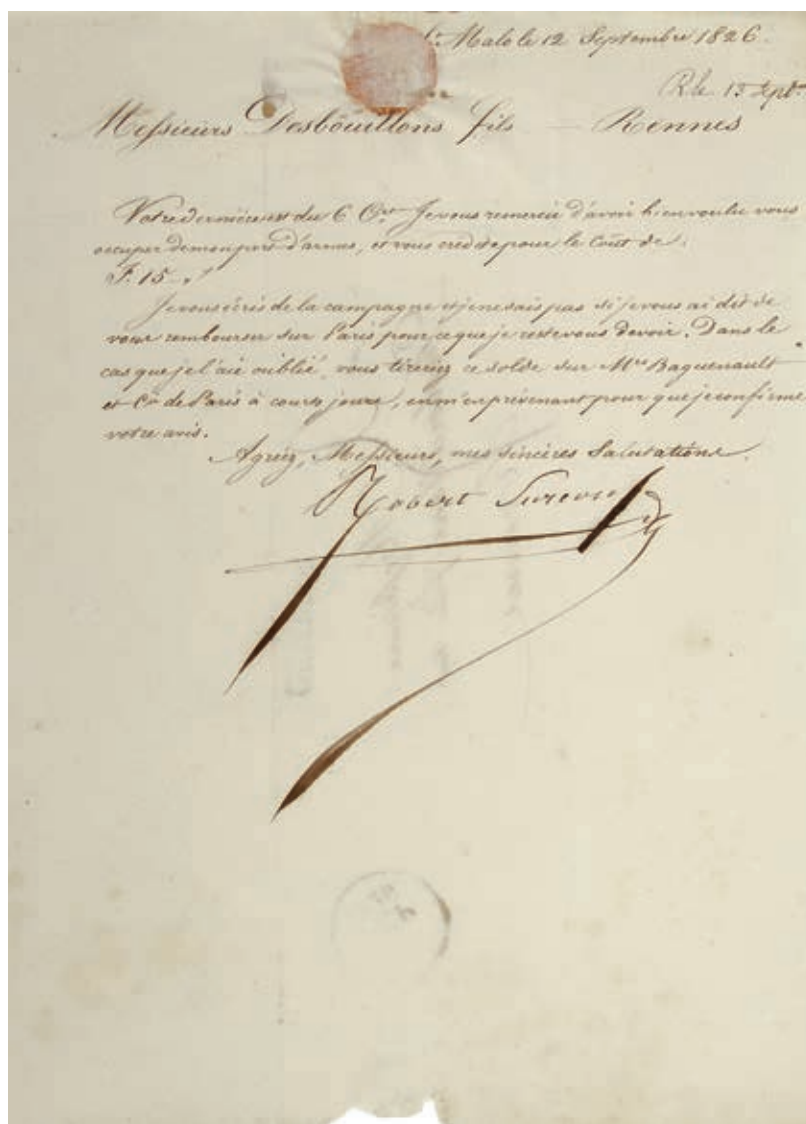 St. Malo le 12 Septembre 1826.
R le 13 Sept.
Messieurs Desbouillons fils — Rennes
Votre dernière est du 6 Ct. Je vous remercie d'avoir bien voulu vous
occuper de mon port d'armes, et vous crédite pour le Coût de.
F. 15 _ "
Je vous écris de la campagne et je ne sais pas si je vous ai dit de
vous rembourser sur Paris pour ce que je reste vous devoir. Dans le
cas que je l'aie oublié, vous tireriez ce solde sur Mrs Baguenault
et Co de Paris à courts jours, en m'en prévenant pour que je confirme
votre avis.
Agréez, Messieurs, mes sincères Salutations.
Robert Surcouf